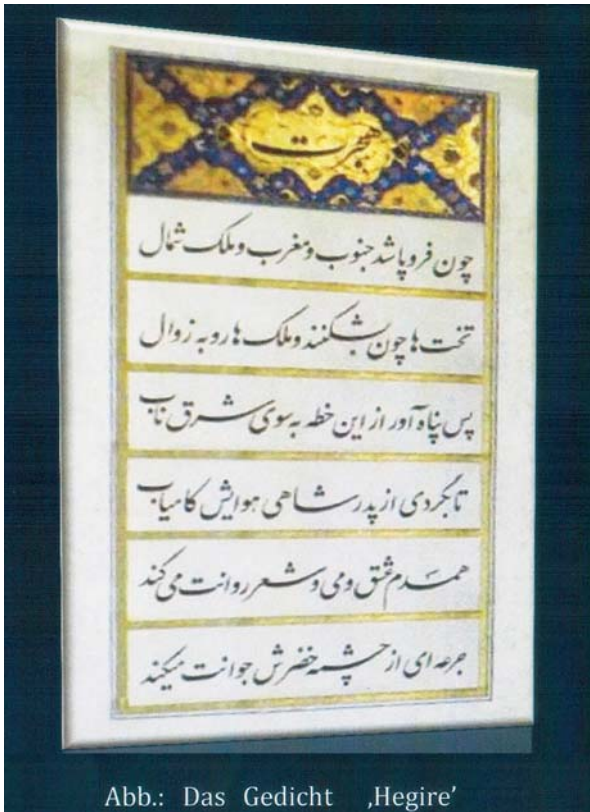 هجرت
چون فروپاشد جنوب و مغرب و ملک شمال
تخت ها چون بشکنند و ملک ها رو به زوال
پس پناه آور از این خطه به سوی شرق ناب
تا بگردی از پدر شاهی هوایش کامیاب
همدم عشق و می و شعر روانت می کند
جرعه ای از چشمه خضرش جوانت میکند
Abb.: Das Gedicht ‚Hegire’